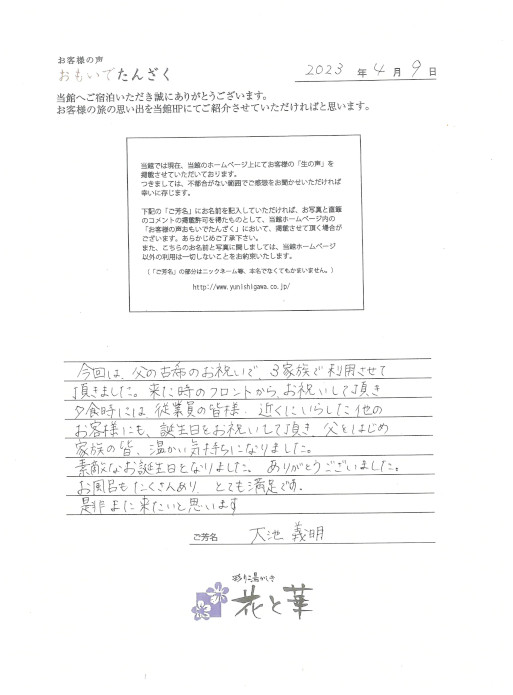 お客様の声
おもいでたんざく
2023 年 4 月 9 日
当館へご宿泊いただき誠にありがとうございます。
お客様の旅の思い出を当館HPにてご紹介させていただければと思います。
当館では現在、当館のホームページ上にてお客様の「生の声」を
掲載させていただいております。
つきましては、不都合がない範囲でご感想をお聞かせいただければ
幸いに存じます。
下記の「ご芳名」にお名前を記入していただければ、お写真と直筆
のコメントの掲載許可を得たものとして、当館ホームページ内の
「お客様の声おもいでたんざく」において、掲載させて頂く場合が
ございます。あらかじめご了承下さい。
また、こちらのお名前と写真に関しましては、当館ホームページ
以外の利用は一切しないことをお約束いたします。
(「ご芳名」の部分はニックネーム等、本名でなくてもかまいません。)
http://www.yunishigawa.co.jp/
今回は、父の古希のお祝いで、3家族で利用させて
頂きました。来た時のフロントから、お祝いして頂き
夕食時には 従業員の皆様、近くにいらした他の
お客様にも、誕生日をお祝いして頂き 父をはじめ
家族の皆、温かい気持ちになりました。
素敵なお誕生日となりました。 ありがとうございました。
お風呂もたくさんあり、とても満足です。
是非また来たいと思います
ご芳名 大池 義明
彩り湯かしき
花と華